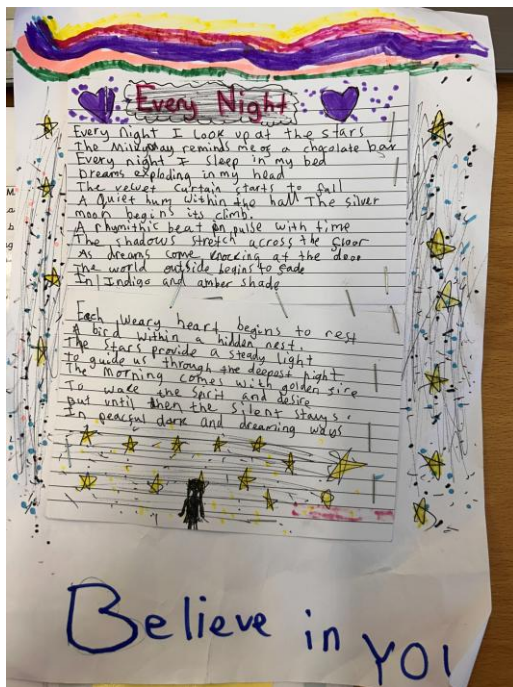 Every Night
Every night I look up at the stars
The Milkyway reminds me of a chocolate bar
Every night I sleep in my bed
Dreams exploding in my head
The velvet curtain starts to fall
A Quiet hum within the hall The silver
moon begins its climb.
A rhymithis beat on pulse with time
The shadows stretch across the floor
As dreams come knocking at the door
The world outside begins to eade
In Indigo and amber shade
Each weary heart begins to rest
A bird within a hidden nest.
The stars provide a steady light
to guide us through the deepest night.
The morning comes with golden fire
To wake the sprit and desire
but until then the silent stays.
In peaceful dark and dreaming ways
Believe in YOU